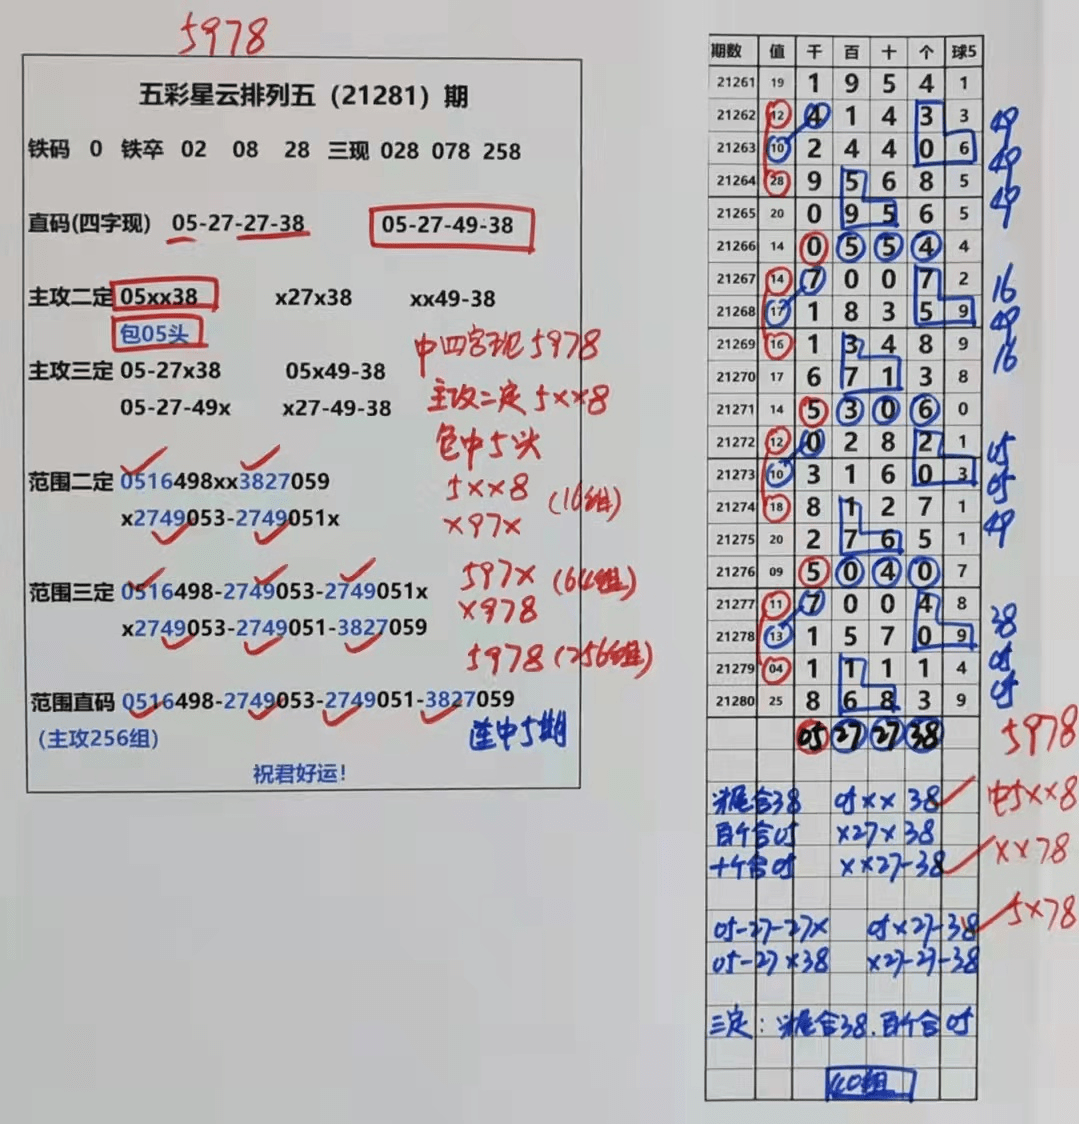 5978
五彩星云排列五（21281）期
铁码 0 铁卒 02 08 28 三现 028 078 258
直码(四字现) 05-27-27-38 05-27-49-38
主攻二定 05xx38 x27x38 xx49-38
包05头
中四字现5978
主攻三定 05-27x38 05x49-38
主攻二定5××8
05-27-49x x27-49-38
包中5头
范围二定 0516498xx3827059
5××8 (16组)
x2749053-2749051x
×97×
范围三定 0516498-2749053-2749051x
597× (64组)
×978
x2749053-2749051-3827059
5978 (256组)
范围直码 0516498-2749053-2749051-3827059
(主攻256组)
连中5期
祝君好运!
期数 值 千 百 十 个 球5
21261 19 1 9 5 4 1
21262 12 4 1 4 3 3 49
21263 10 2 4 4 0 6 49
21264 28 9 5 6 8 5 49
21265 20 0 9 5 6 5
21266 14 0 5 5 4 4
21267 14 7 0 0 7 2 16
21268 17 1 8 3 5 9 49
21269 16 1 3 4 8 9 16
21270 17 6 7 1 3 8
21271 14 5 3 0 6 0
21272 12 0 2 8 2 1 05
21273 10 3 1 6 0 3 05
21274 18 8 1 2 7 1 49
21275 20 2 7 6 5 1
21276 09 5 0 4 0 7
21277 11 7 0 0 4 8 38
21278 13 1 5 7 0 9 05
21279 04 1 1 1 1 4 05
21280 25 8 6 8 3 9
05 27 27 38 5978
头尾合38 05×× 38 中5××8
百个合05 ×27×38
十个合05 ××27-38 ××78
05-27-27× 05×27-38 5×78
05-27×38 ×27-27-38
三定：头尾合38.百个合05
40组